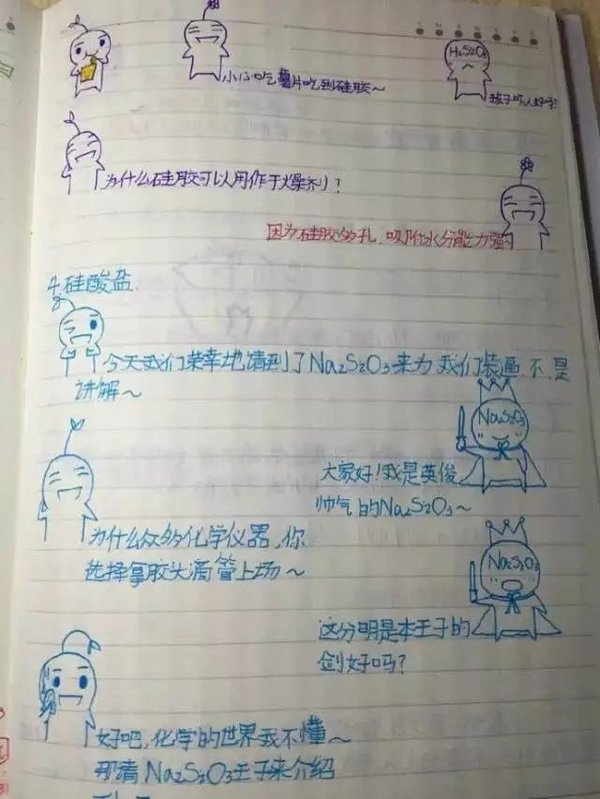 小心吃薯片吃到硅胶~
H₂S2O₃
孩子吓人好吗?
为什么硅胶可以用作干燥剂?
因为硅胶多孔,吸附水分能力强
4.硅酸盐
今天我们荣幸地请到了Na₂S2O₃来为我们装逼,不,是
讲解~
Na₂S2O₃
大家好!我是英俊
帅气的Na₂S2O₃~
为什么众多化学仪器,你
选择拿胶头滴管上场~
Na₂S2O₃
这分明是本王子的
剑好吗?
好吧,化学的世界我不懂~
那请Na₂S2O₃王子来介绍